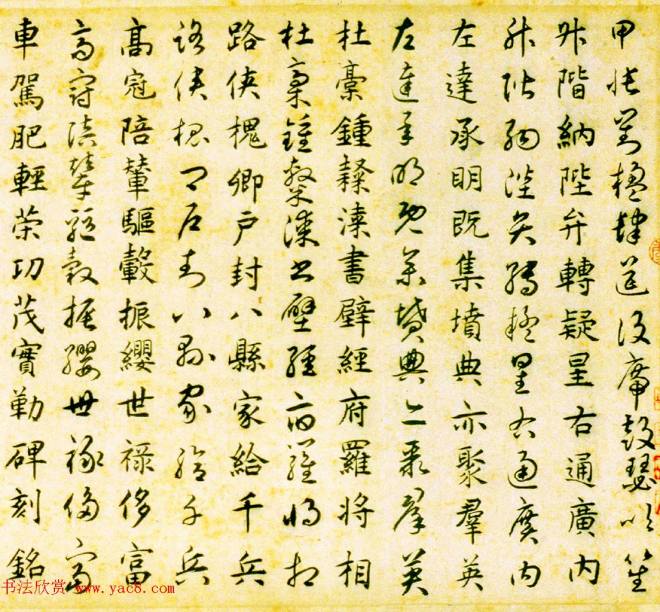 甲帳對楹肆筵設席鼓瑟吹笙
升階納陛弁轉疑星右通廣內
升階納陛弁轉疑星右通廣內
左達承明既集墳典亦聚羣英
左達承明既集墳典亦聚羣英
杜稾鍾隸漆書壁經府羅將相
杜稾鍾隸漆書壁經府羅將相
路俠槐卿戶封八縣家給千兵
路俠槐卿戶封八縣家給千兵
高冠陪輦驅轂振纓世祿侈富
高冠陪輦驅轂振纓世祿侈富
車駕肥輕策功茂實勒碑刻銘
书法欣赏 www.yac8.com